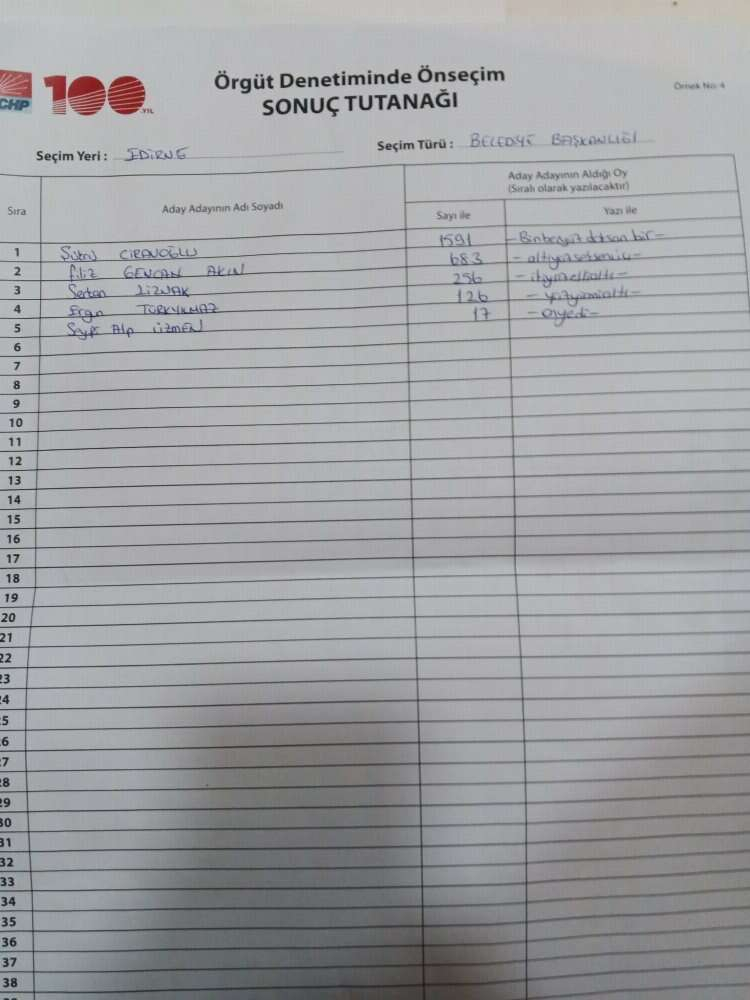 CHP 100.YIL
Örgüt Denetiminde Önseçim
SONUÇ TUTANAĞI
Örnek No: 4
Seçim Yeri : EDİRNE
Seçim Türü : BELEDİYE BAŞKANLIĞI
Sıra
Aday Adayının Adı Soyadı
Aday Adayının Aldığı Oy
(Sıralı olarak yazılacaktır)
Sayı ile
Yazı ile
1 Şükrü CİRAVOĞLU 1591 -Binbeşyüzdoksanbir-
2 Filiz GENCAN AKIN 683 -altıyüzseksenüç-
3 Sertan LİZVAK 256 -ikiyüzellialtı-
4 Ergin TÜRKYILMAZ 126 -yüzyirmialtı-
5 Alp ÜZMEN 17 -onyedi-
6
7
8
9
10
11
12
13
14
15
16
17
18
19
20
21
22
23
24
25
26
27
28
29
30
31
32
33
34
35
36
37
38